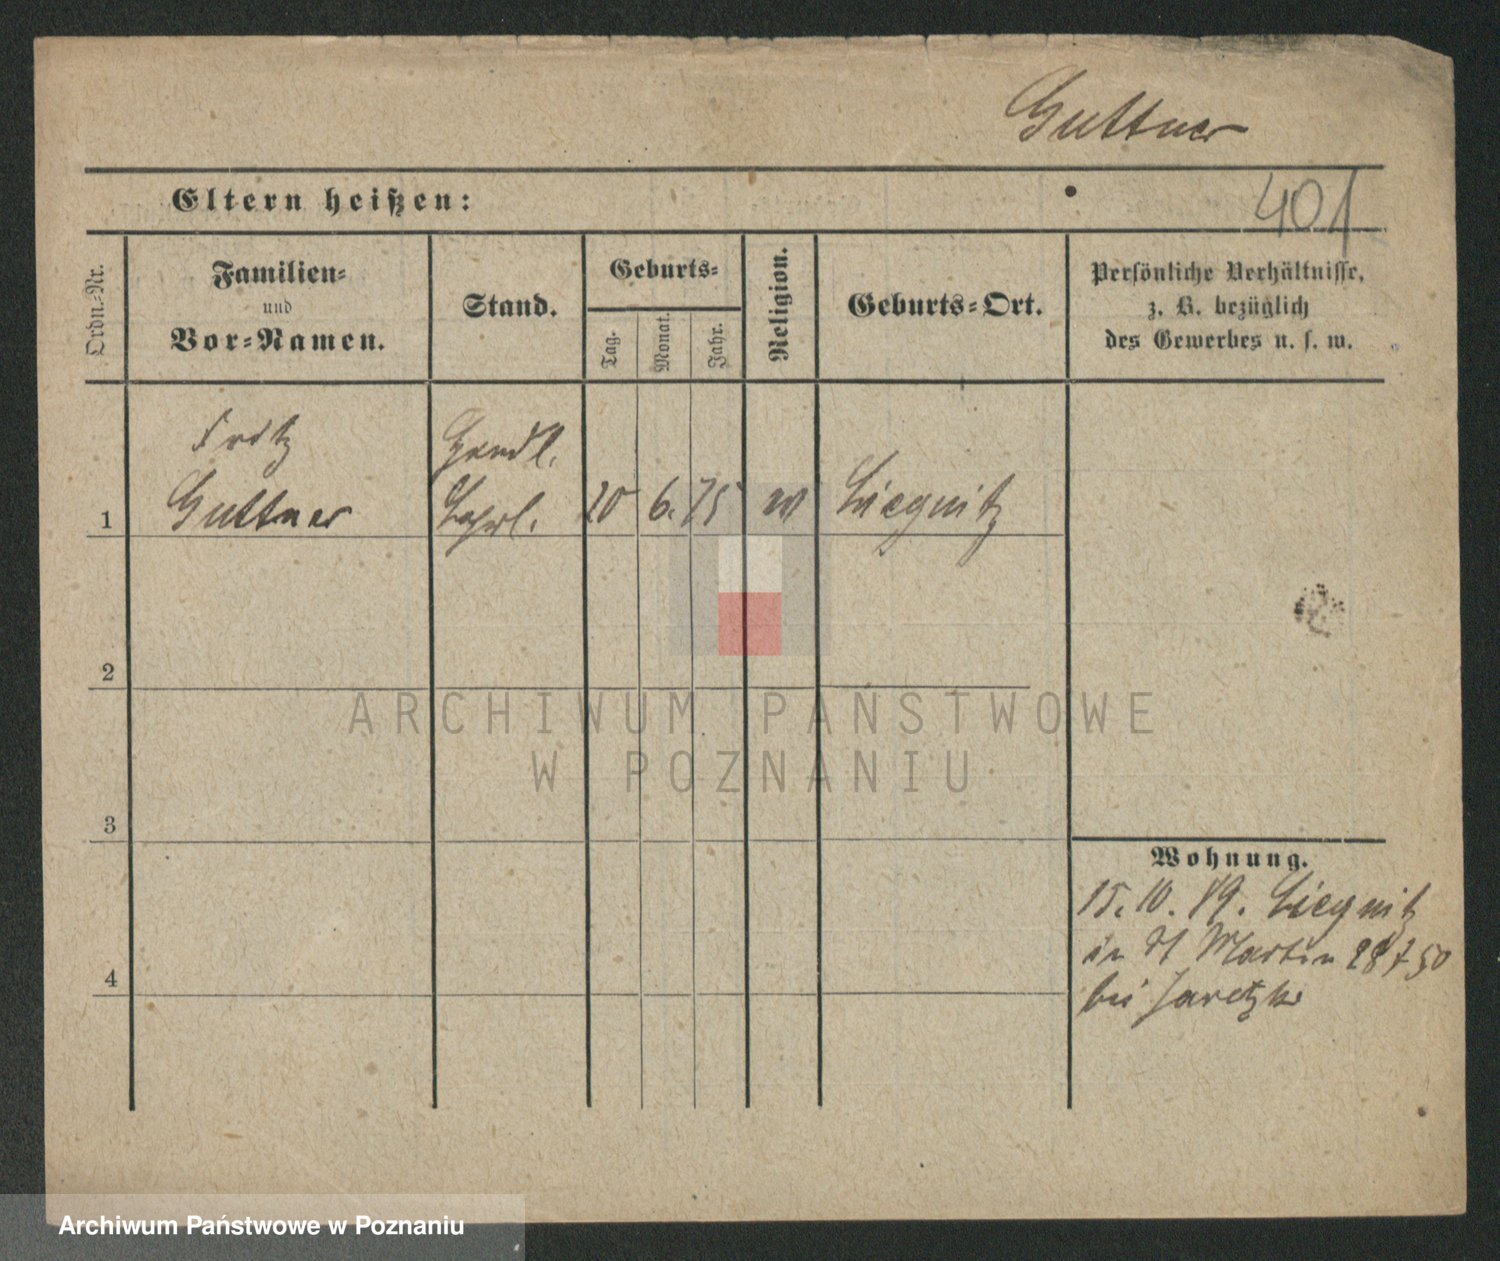 Guttner
Eltern heißen:
401
Ordn.-Nr.
Familien-
und
Vor-Namen.
Stand.
Geburts-
Tag.
Monat.
Jahr.
Religion.
Geburts-Ort.
Persönliche Verhältnisse,
z. B. bezüglich
des Gewerbes u. s. w.
Fritz
Handl.
1
Guttner
Lehrl.
6. 75
Liegnitz
2
ARCHIWUM PAŃSTWOWE
W POZNANIU
3
Wohnung.
15. 10. 89. Liegnitz
in St Martin 28
bei Jaretzke
4
Archiwum Państwowe w Poznaniu